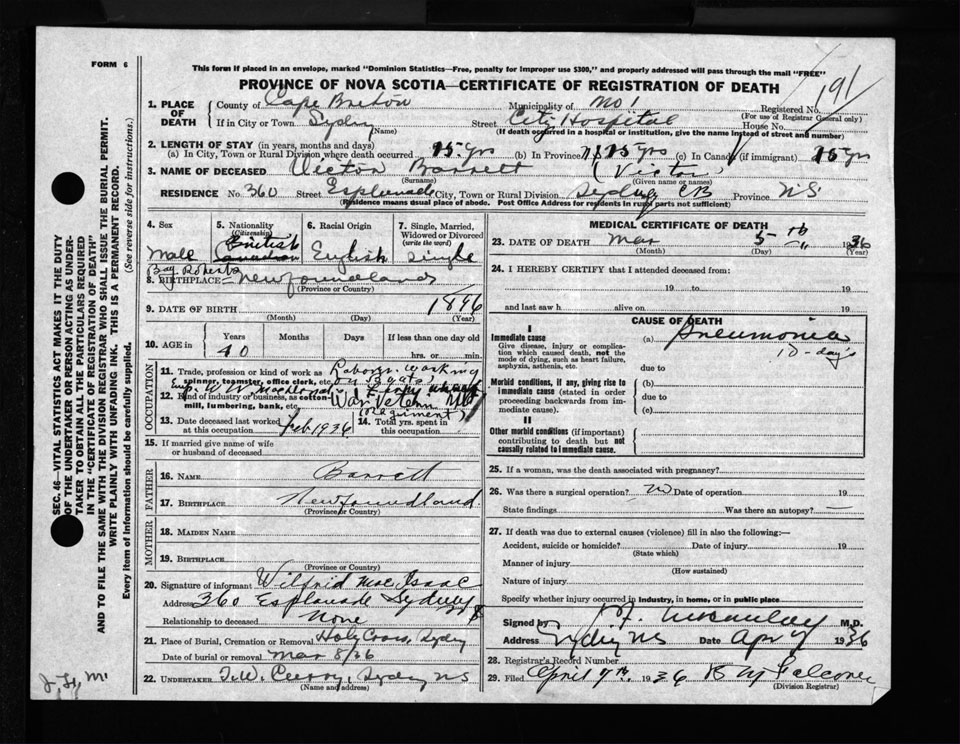 FORM 6
This form if placed in an envelope, marked "Dominion Statistics—Free, penalty for improper use $300," and properly addressed will pass through the mail "FREE"
PROVINCE OF NOVA SCOTIA—CERTIFICATE OF REGISTRATION OF DEATH
191
1. PLACE OF DEATH
County of Cape Breton Municipality of No 1 Registered No.
(For use of Registrar General only)
If in City or Town Sydney Street City Hospital House No.
(Name) (If death occurred in a hospital or institution, give the name instead of street and number)
2. LENGTH OF STAY (in years, months and days)
(a) In City, Town or Rural Division where death occurred 15 yrs (b) In Province 15 yrs (c) In Canada (if immigrant) 15 yrs
3. NAME OF DECEASED Victor Barrett (Victor)
(Surname) (Given name or names)
RESIDENCE No. 360 Street Esplanade City, Town or Rural Division Sydney CB Province N.S.
(Residence means usual place of abode. Post Office Address for residents in rural parts not sufficient)
4. Sex Male
5. Nationality (Citizenship) British Canadian
6. Racial Origin English
7. Single, Married, Widowed or Divorced (write the word) Single
Bay Roberts
8. BIRTHPLACE Newfoundland
(Province or Country)
9. DATE OF BIRTH 1896
(Month) (Day) (Year)
10. AGE in Years Months Days If less than one day old
40 hrs. or min.
OCCUPATION
11. Trade, profession or kind of work as spinner, teamster, office clerk, etc. Labour working on boats
12. Kind of industry or business, as cotton-mill, lumbering, bank, etc. War Veteran
(Regiment)
13. Date deceased last worked at this occupation Feb 1936
14. Total yrs. spent in this occupation
15. If married give name of wife or husband of deceased
FATHER
16. NAME Barrett
17. BIRTHPLACE Newfoundland
(Province or Country)
MOTHER
18. MAIDEN NAME
19. BIRTHPLACE
(Province or Country)
20. Signature of informant Wilfrid MacIsaac
Address 360 Esplanade Sydney NS
Relationship to deceased None
21. Place of Burial, Cremation or Removal Holy Cross, Sydney
Date of burial or removal Mar 8/36
22. UNDERTAKER T.W. Curry, Sydney NS
(Name and address)
MEDICAL CERTIFICATE OF DEATH
23. DATE OF DEATH Mar 5th 1936
(Month) (Day) (Year)
24. I HEREBY CERTIFY that I attended deceased from:
19 to 19
and last saw h alive on 19
CAUSE OF DEATH
I
Immediate cause (a) Pneumonia
Give disease, injury or complication which caused death, not the mode of dying, such as heart failure, asphyxia, asthenia, etc.
10-days
due to
Morbid conditions, if any, giving rise to immediate cause (stated in order proceeding backwards from immediate cause).
(b)
due to
(c)
II
Other morbid conditions (if important) contributing to death but not causally related to immediate cause.
25. If a woman, was the death associated with pregnancy?
26. Was there a surgical operation? No Date of operation 19
State findings Was there an autopsy? —
27. If death was due to external causes (violence) fill in also the following:—
Accident, suicide or homicide? Date of injury 19
(State which)
Manner of injury
(How sustained)
Nature of injury
Specify whether injury occurred in industry, in home, or in public place
Signed by J. F. McAulay M.D.
Address Sydney NS Date Apr 7 1936
28. Registrar's Record Number
29. Filed April 9th 1936
(Division Registrar)
SEC. 46—VITAL STATISTICS ACT MAKES IT THE DUTY
OF THE UNDERTAKER OR PERSON ACTING AS UNDER-
TAKER TO OBTAIN ALL THE PARTICULARS REQUIRED
IN THE "CERTIFICATE OF REGISTRATION OF DEATH"
AND TO FILE THE SAME WITH THE DIVISION REGISTRAR WHO SHALL ISSUE THE BURIAL PERMIT.
WRITE PLAINLY WITH UNFADING INK. THIS IS A PERMANENT RECORD.
Every item of information should be carefully supplied. (See reverse side for instructions.)